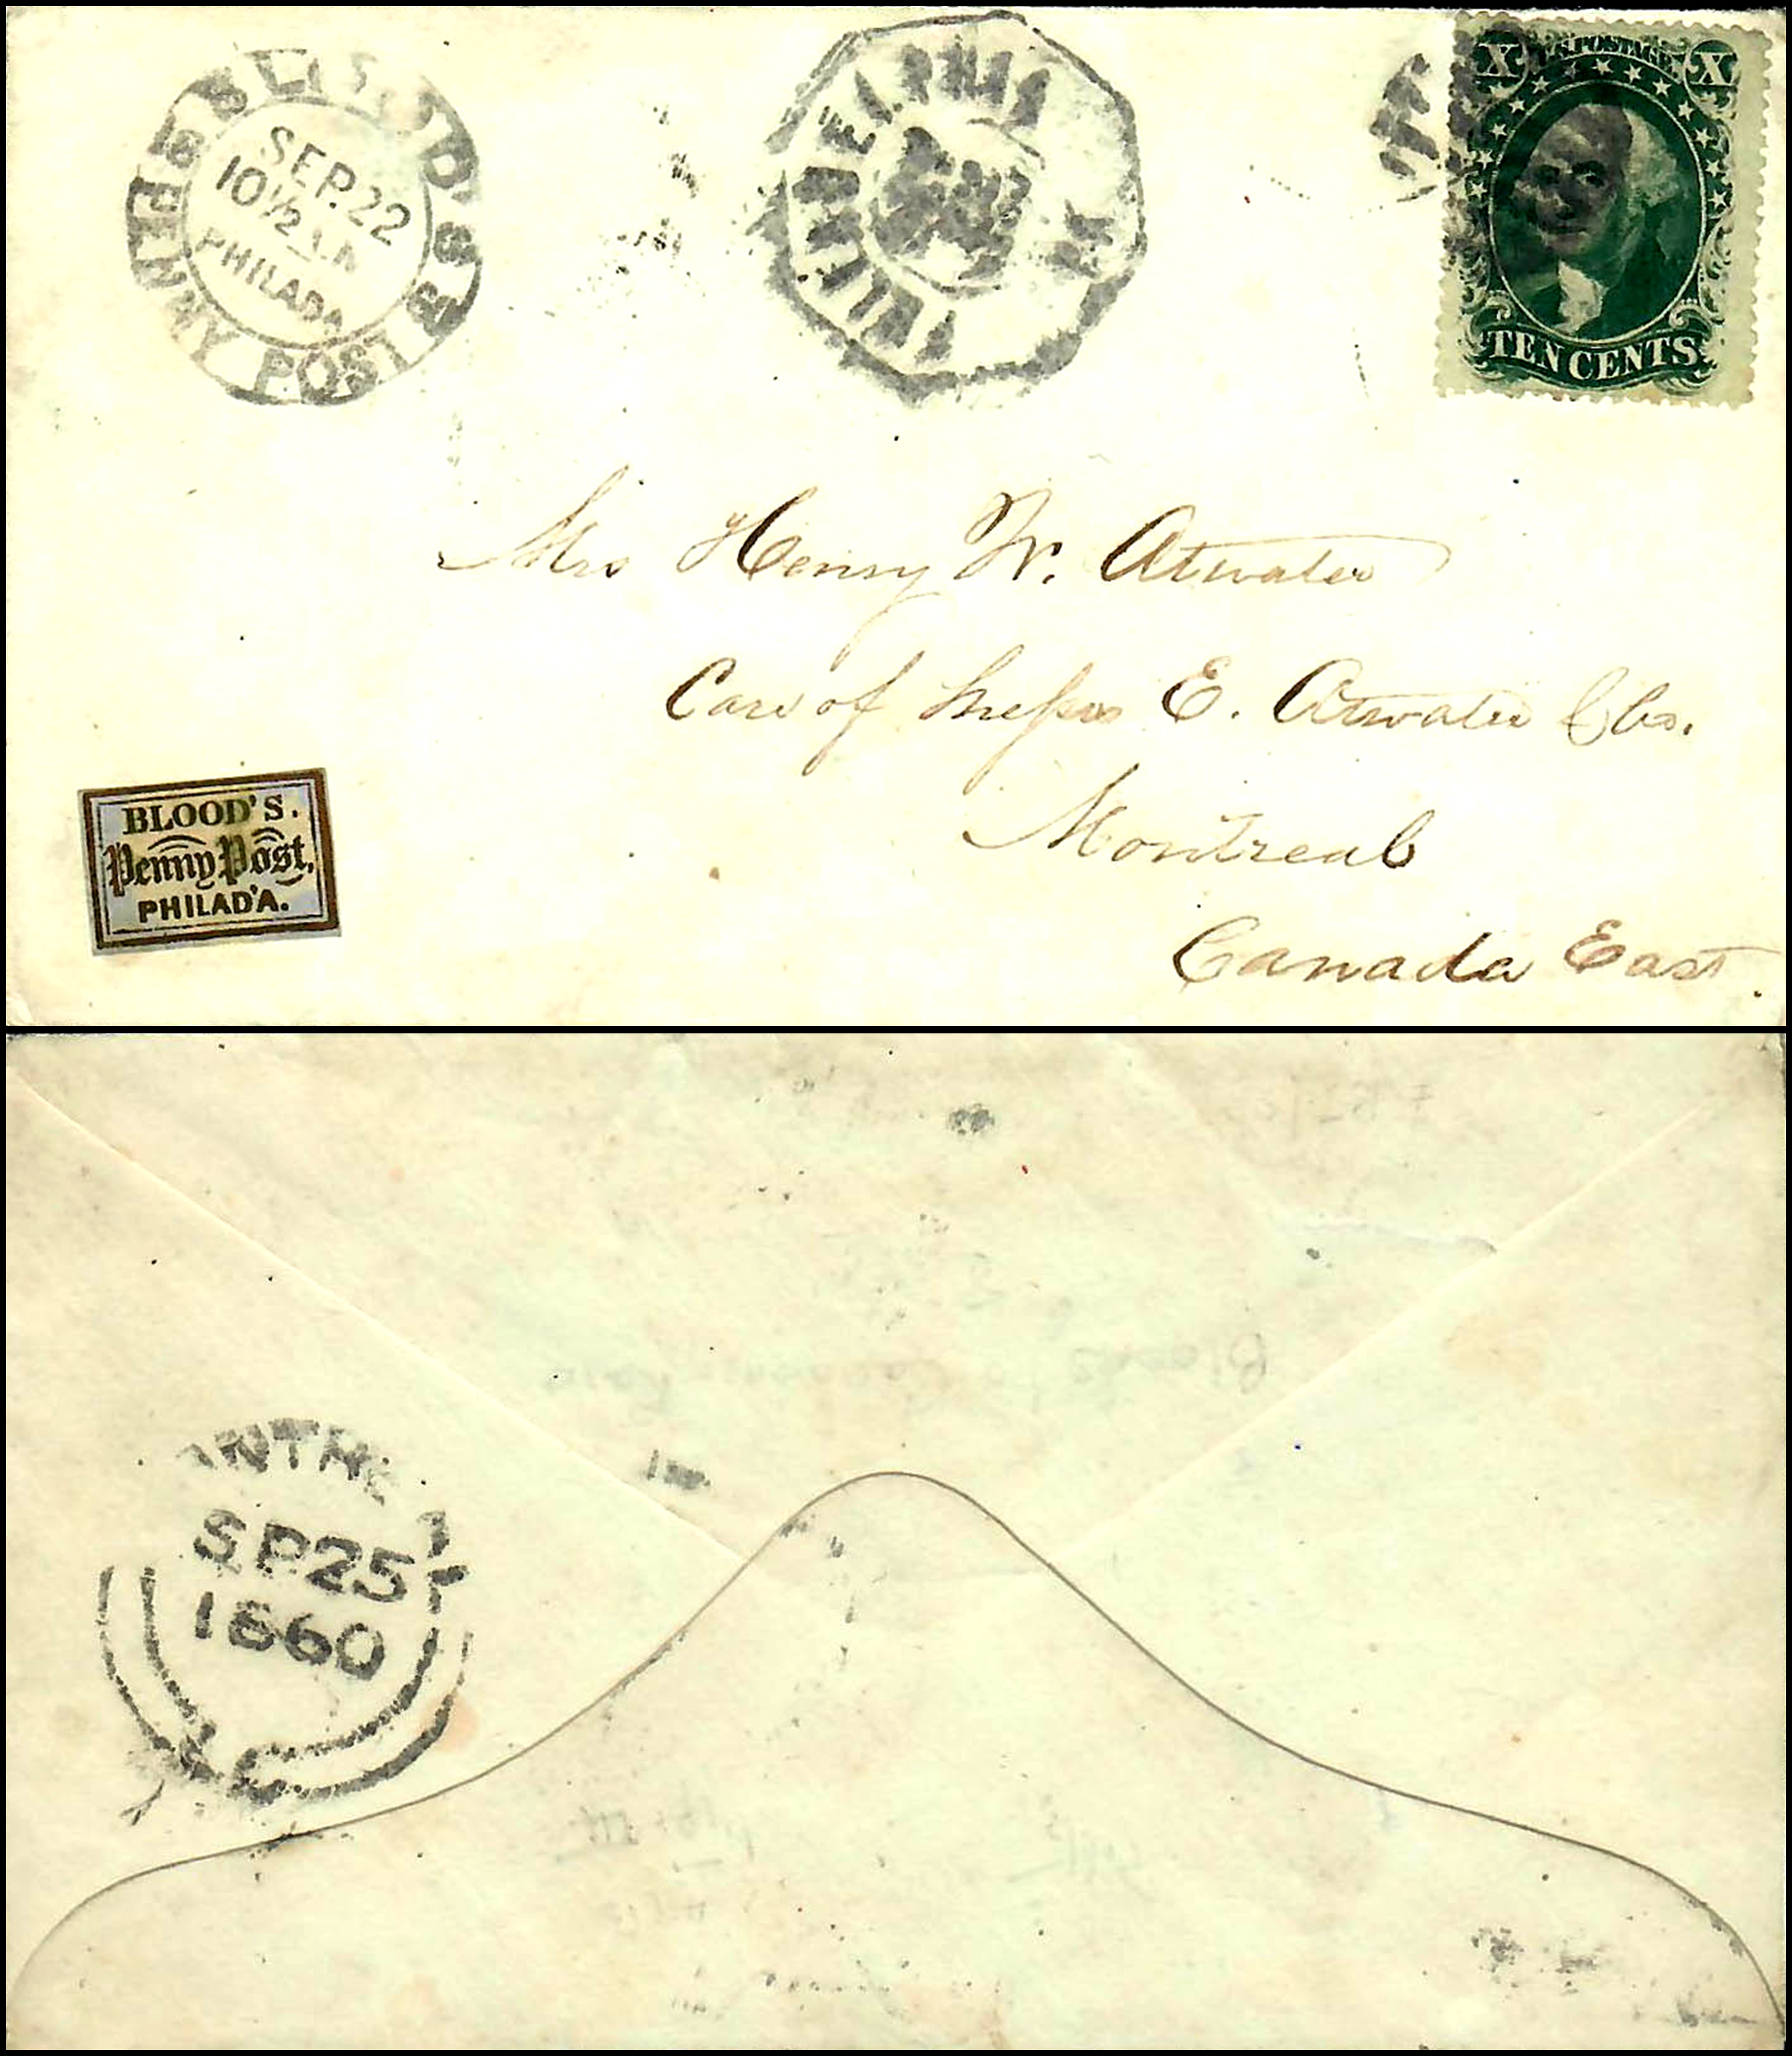 BLOOD'S
PENNY POST
SEP.22
10 1/2 AM
PHILADA
PHILADELPHIA
X U.S. POSTAGE X
TEN CENTS
Mrs Henry W. Atwater
Care of Messrs E. Atwater & Co.
Montreal
Canada East.
BLOOD'S.
Penny Post,
PHILAD'A.
SP 25
1860